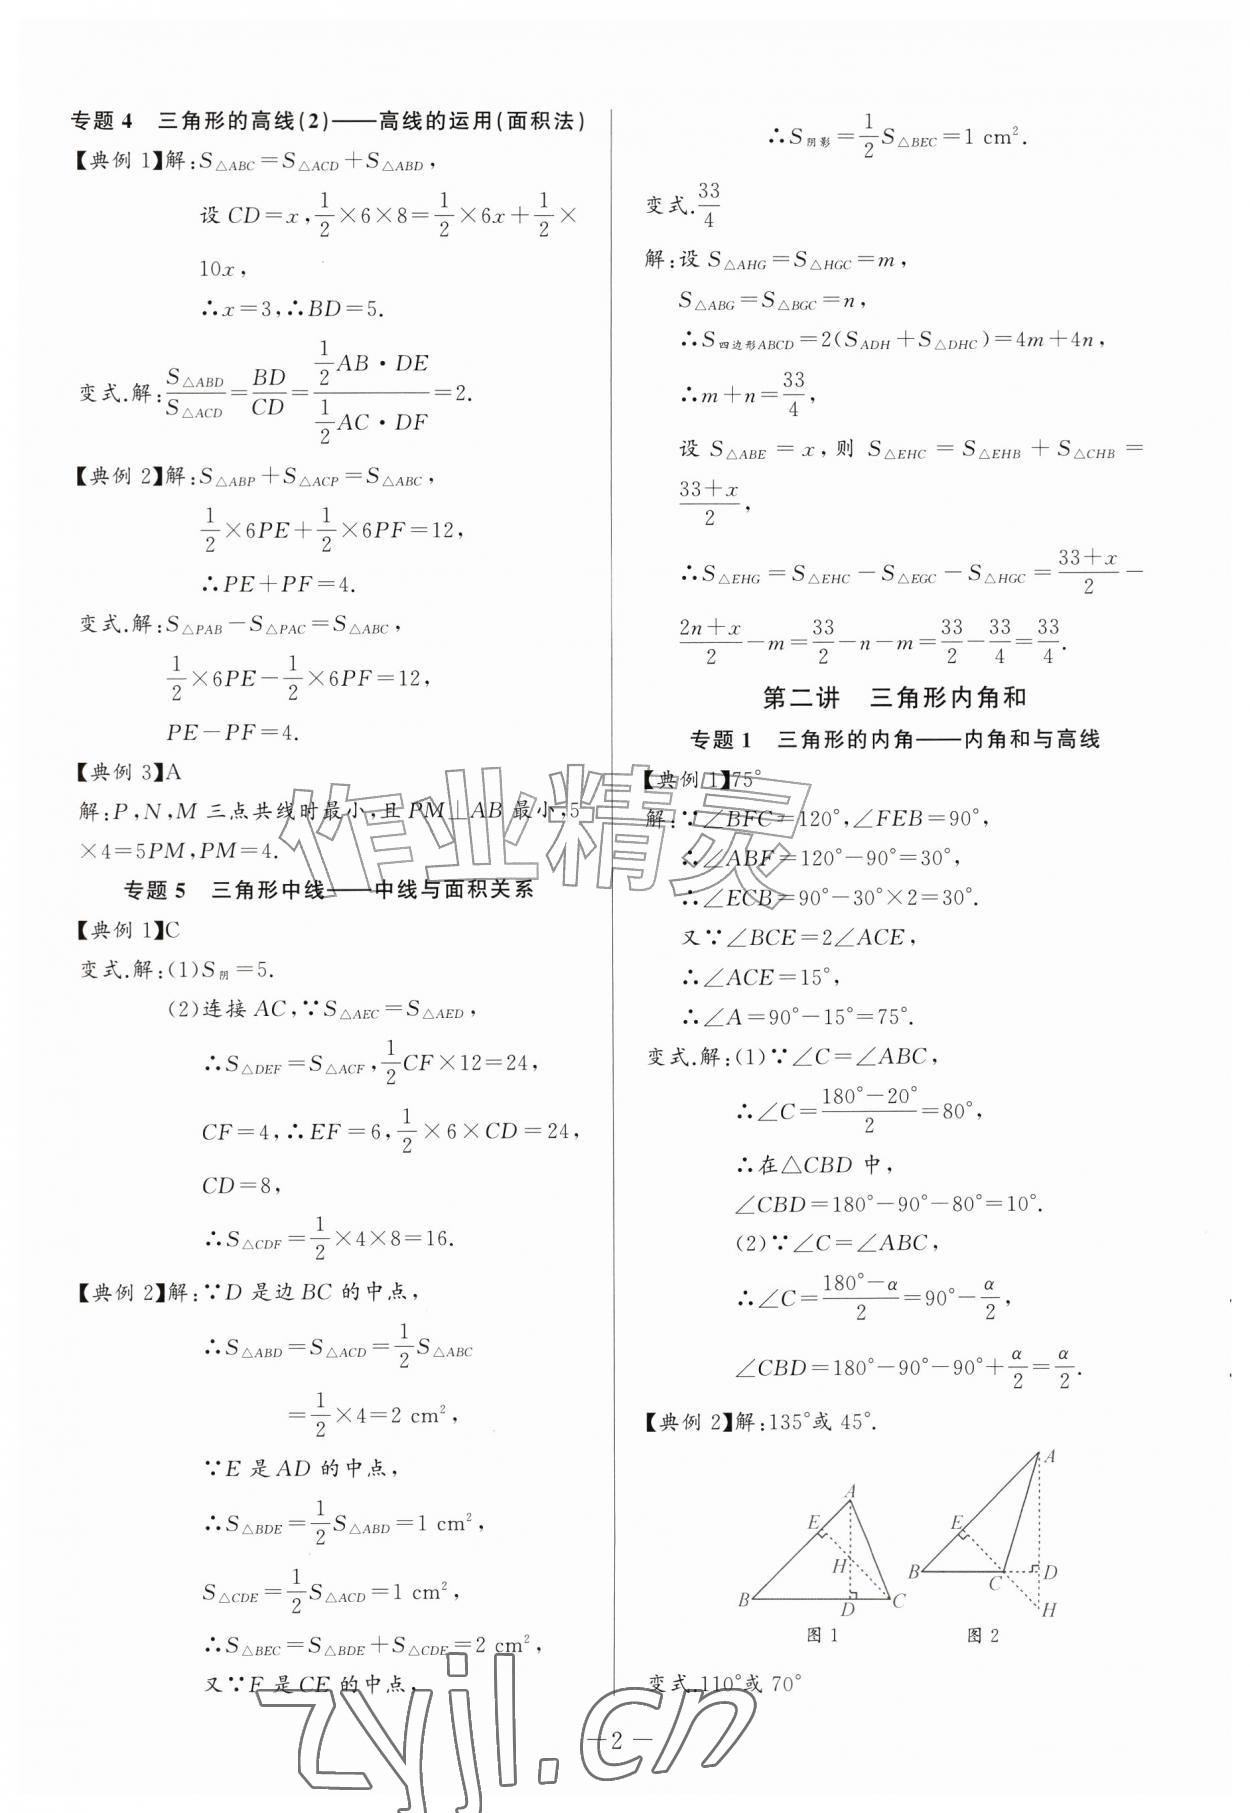 专题 4　三角形的高线(2)——高线的运用(面积法)
【典例 1】解:S△ABC=S△ACD+S△ABD,
设 CD=x,1/2×6×8=1/2×6x+1/2×
10x,
∴x=3,∴BD=5.
变式.解:S△ABD/S△ACD=BD/CD=(1/2AB·DE)/(1/2AC·DF)=2.
【典例 2】解:S△ABP+S△ACP=S△ABC,
1/2×6PE+1/2×6PF=12,
∴PE+PF=4.
变式.解:S△PAB-S△PAC=S△ABC,
1/2×6PE-1/2×6PF=12,
PE-PF=4.
【典例 3】A
解:P,N,M 三点共线时最小,且 PM⊥AB 最小,5
×4=5PM,PM=4.
专题 5　三角形中线——中线与面积关系
【典例 1】C
变式.解:(1)S阴=5.
(2)连接 AC,∵S△AEC=S△AED,
∴S△DEF=S△ACF,1/2CF×12=24,
CF=4,∴EF=6,1/2×6×CD=24,
CD=8,
∴S△CDF=1/2×4×8=16.
【典例 2】解:∵D 是边 BC 的中点,
∴S△ABD=S△ACD=1/2S△ABC
=1/2×4=2 cm²,
∵E 是 AD 的中点,
∴S△BDE=1/2S△ABD=1 cm²,
S△CDE=1/2S△ACD=1 cm²,
∴S△BEC=S△BDE+S△CDE=2 cm²,
又∵F 是 CE 的中点,
∴S阴影=1/2S△BEC=1 cm².
变式.33/4
解:设 S△AHG=S△HGC=m,
S△ABG=S△BGC=n,
∴S四边形ABCD=2(SADH+S△DHC)=4m+4n,
∴m+n=33/4,
设 S△ABE=x,则 S△EHC=S△EHB+S△CHB=
(33+x)/2,
∴S△EHG=S△EHC-S△EGC-S△HGC=(33+x)/2-
(2n+x)/2-m=33/2-n-m=33/2-33/4=33/4.
第二讲　三角形内角和
专题 1　三角形的内角——内角和与高线
【典例 1】75°
解:∵∠BFC=120°,∠FEB=90°,
∴∠ABF=120°-90°=30°,
∴∠ECB=90°-30°×2=30°.
又∵∠BCE=2∠ACE,
∴∠ACE=15°,
∴∠A=90°-15°=75°.
变式.解:(1)∵∠C=∠ABC,
∴∠C=(180°-20°)/2=80°,
∴在△CBD 中,
∠CBD=180°-90°-80°=10°.
(2)∵∠C=∠ABC,
∴∠C=(180°-α)/2=90°-α/2,
∠CBD=180°-90°-90°+α/2=α/2.
【典例 2】解:135°或 45°.
A
E
H
B
D
C
图 1
A
E
B
C
D
H
图 2
变式.110°或 70°
—2—
作业精灵
zyjl.cn